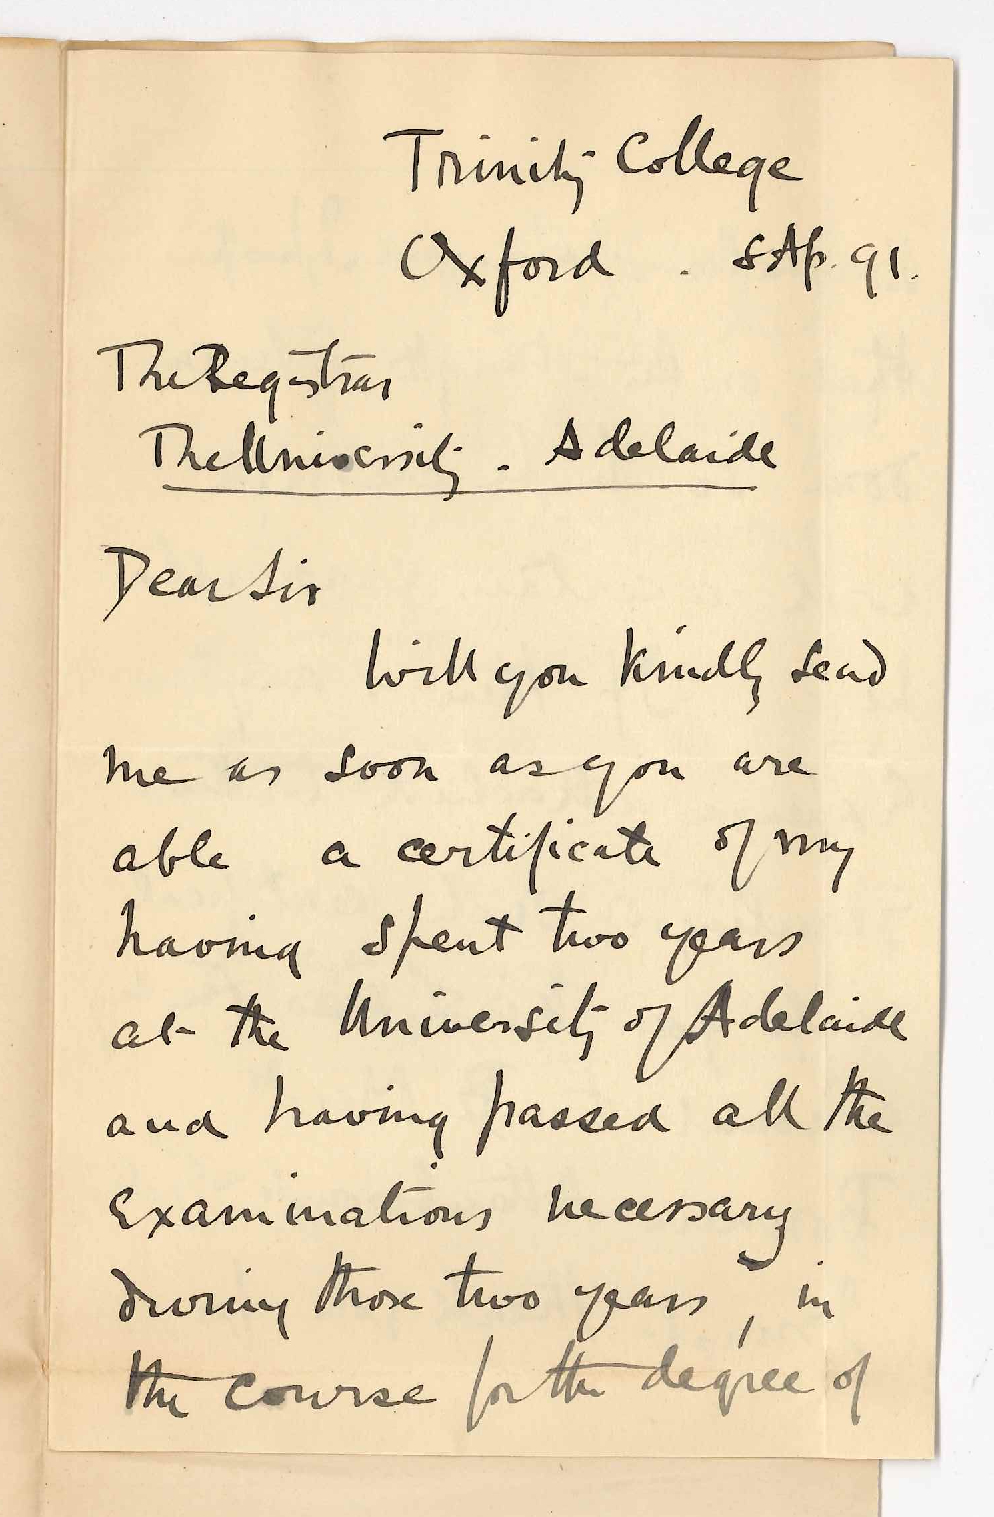 Trinity College
Oxford . 8 Ap. 91.
The Registrar
The University . Adelaide
Dear Sir
Will you kindly send
me as soon as you are
able a certificate of my
having spent two years
at the University of Adelaide
and having passed all the
Examinations necessary
during those two years, in
the course for the degree of